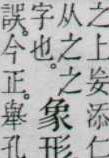 之上妄添
从之之
字也。
象形
誤。今正。舉孔